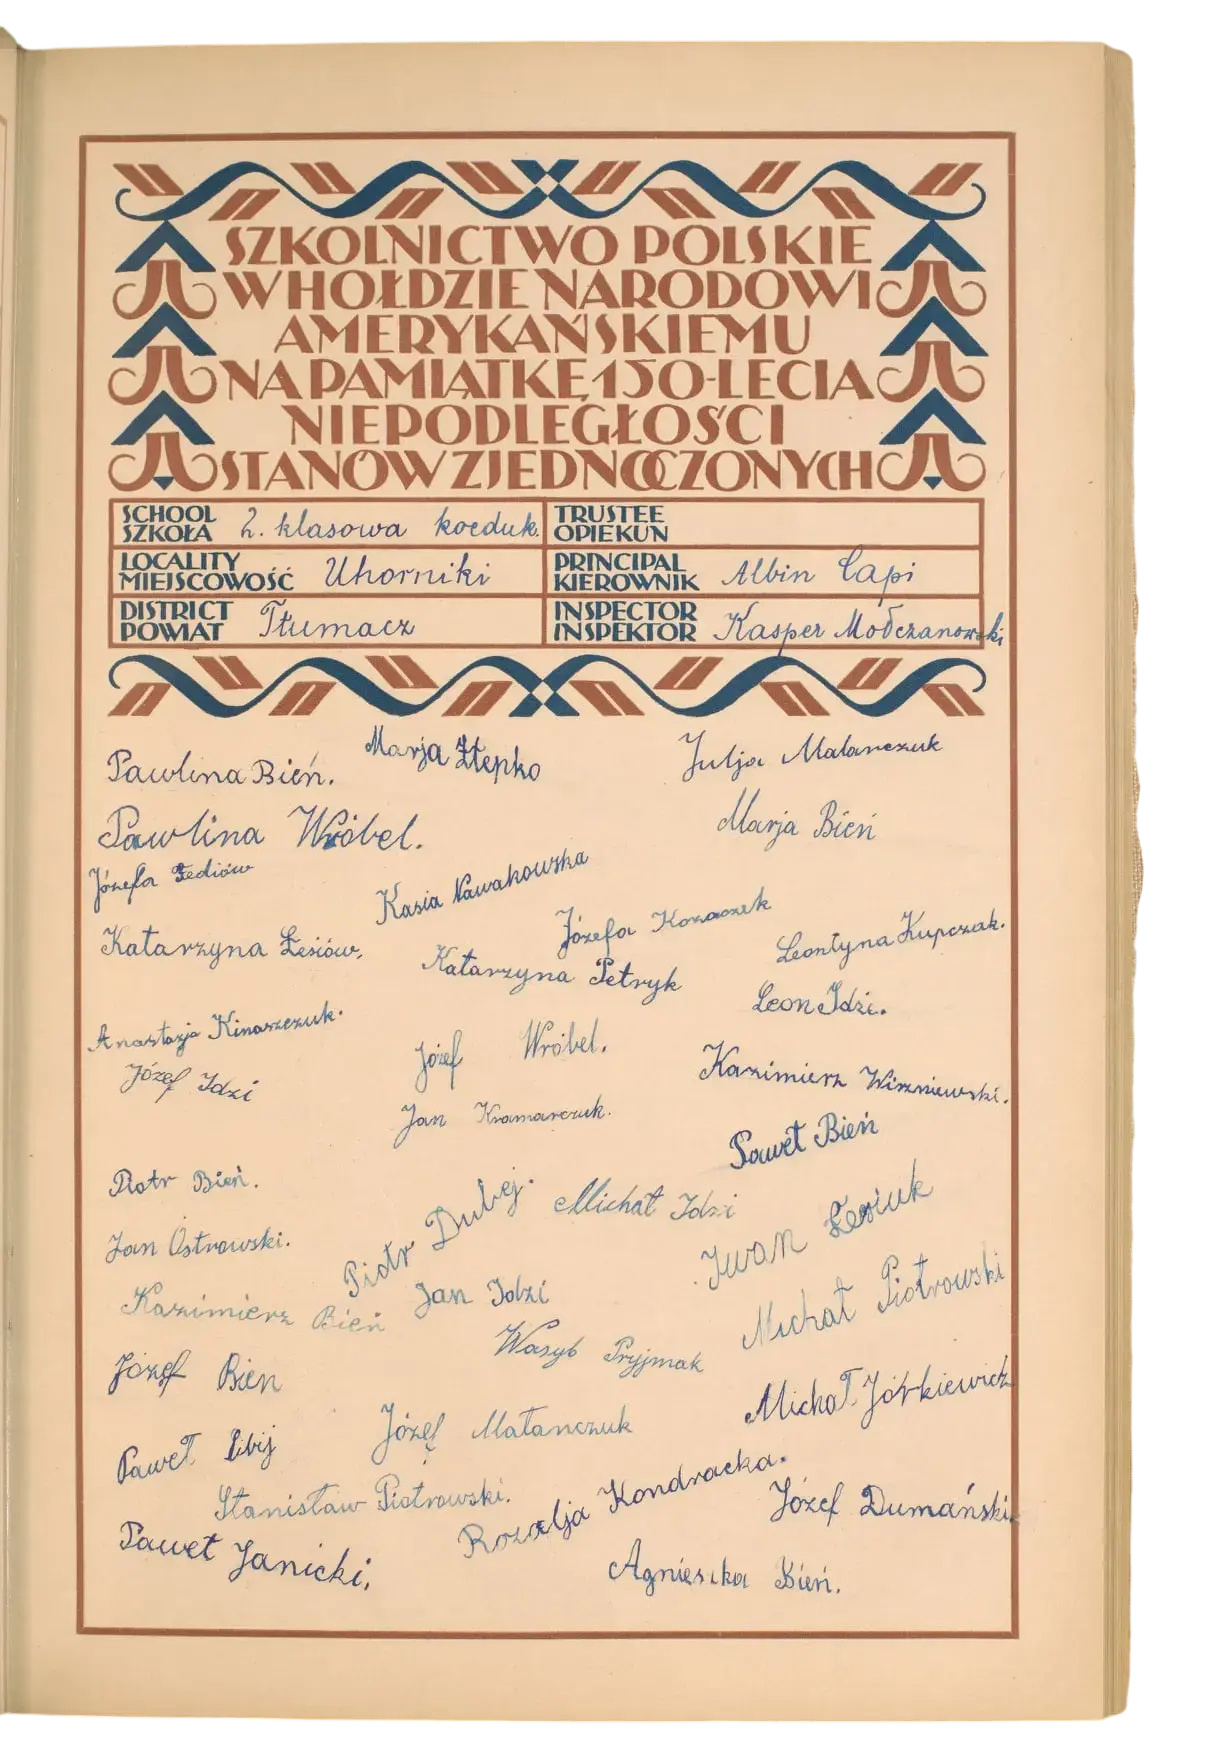 SZKOLNICTWO POLSKIE
W HOŁDZIE NARODOWI
AMERYKAŃSKIEMU
NA PAMIĄTKĘ 150-LECIA
NIEPODLEGŁOŚCI
STANÓW ZJEDNOCZONYCH
SCHOOL
SZKOŁA 2. klasowa koeduk.
TRUSTEE
OPIEKUN
LOCALITY
MIEJSCOWOŚĆ Uhorniki
PRINCIPAL
KIEROWNIK Albin Capi
DISTRICT
POWIAT Tłumacz
INSPECTOR
INSPEKTOR Kasper Mołczanowski
Pawlina Bień.
Marja Łtepko
Julja Malanczuk
Pawlina Wróbel.
Marja Bień
Józefa Fediów
Kasia Nawakowska
Józefa Kozaczek
Leontyna Kupczak.
Katarzyna Łesiów.
Katarzyna Petryk
Leon Idzi.
Anastazja Kinaszczuk.
Józef Wróbel.
Józef Idzi
Kazimierz Wiszniewski.
Jan Kramarczuk.
Paweł Bień
Piotr Bień.
Piotr Dubej.
Michał Idzi
Iwan Łesiuk
Jan Ostrowski.
Jan Idzi
Kazimierz Bień
Michał Piotrowski
Wasyb Pryjmak
Józef Bien
Michał Jórkiewicz
Józef Małanczuk
Paweł
Stanisław Piotrowski.
Rozalja Kondracka.
Józef Dumański.
Paweł Janicki.
Agnieszka Bień.